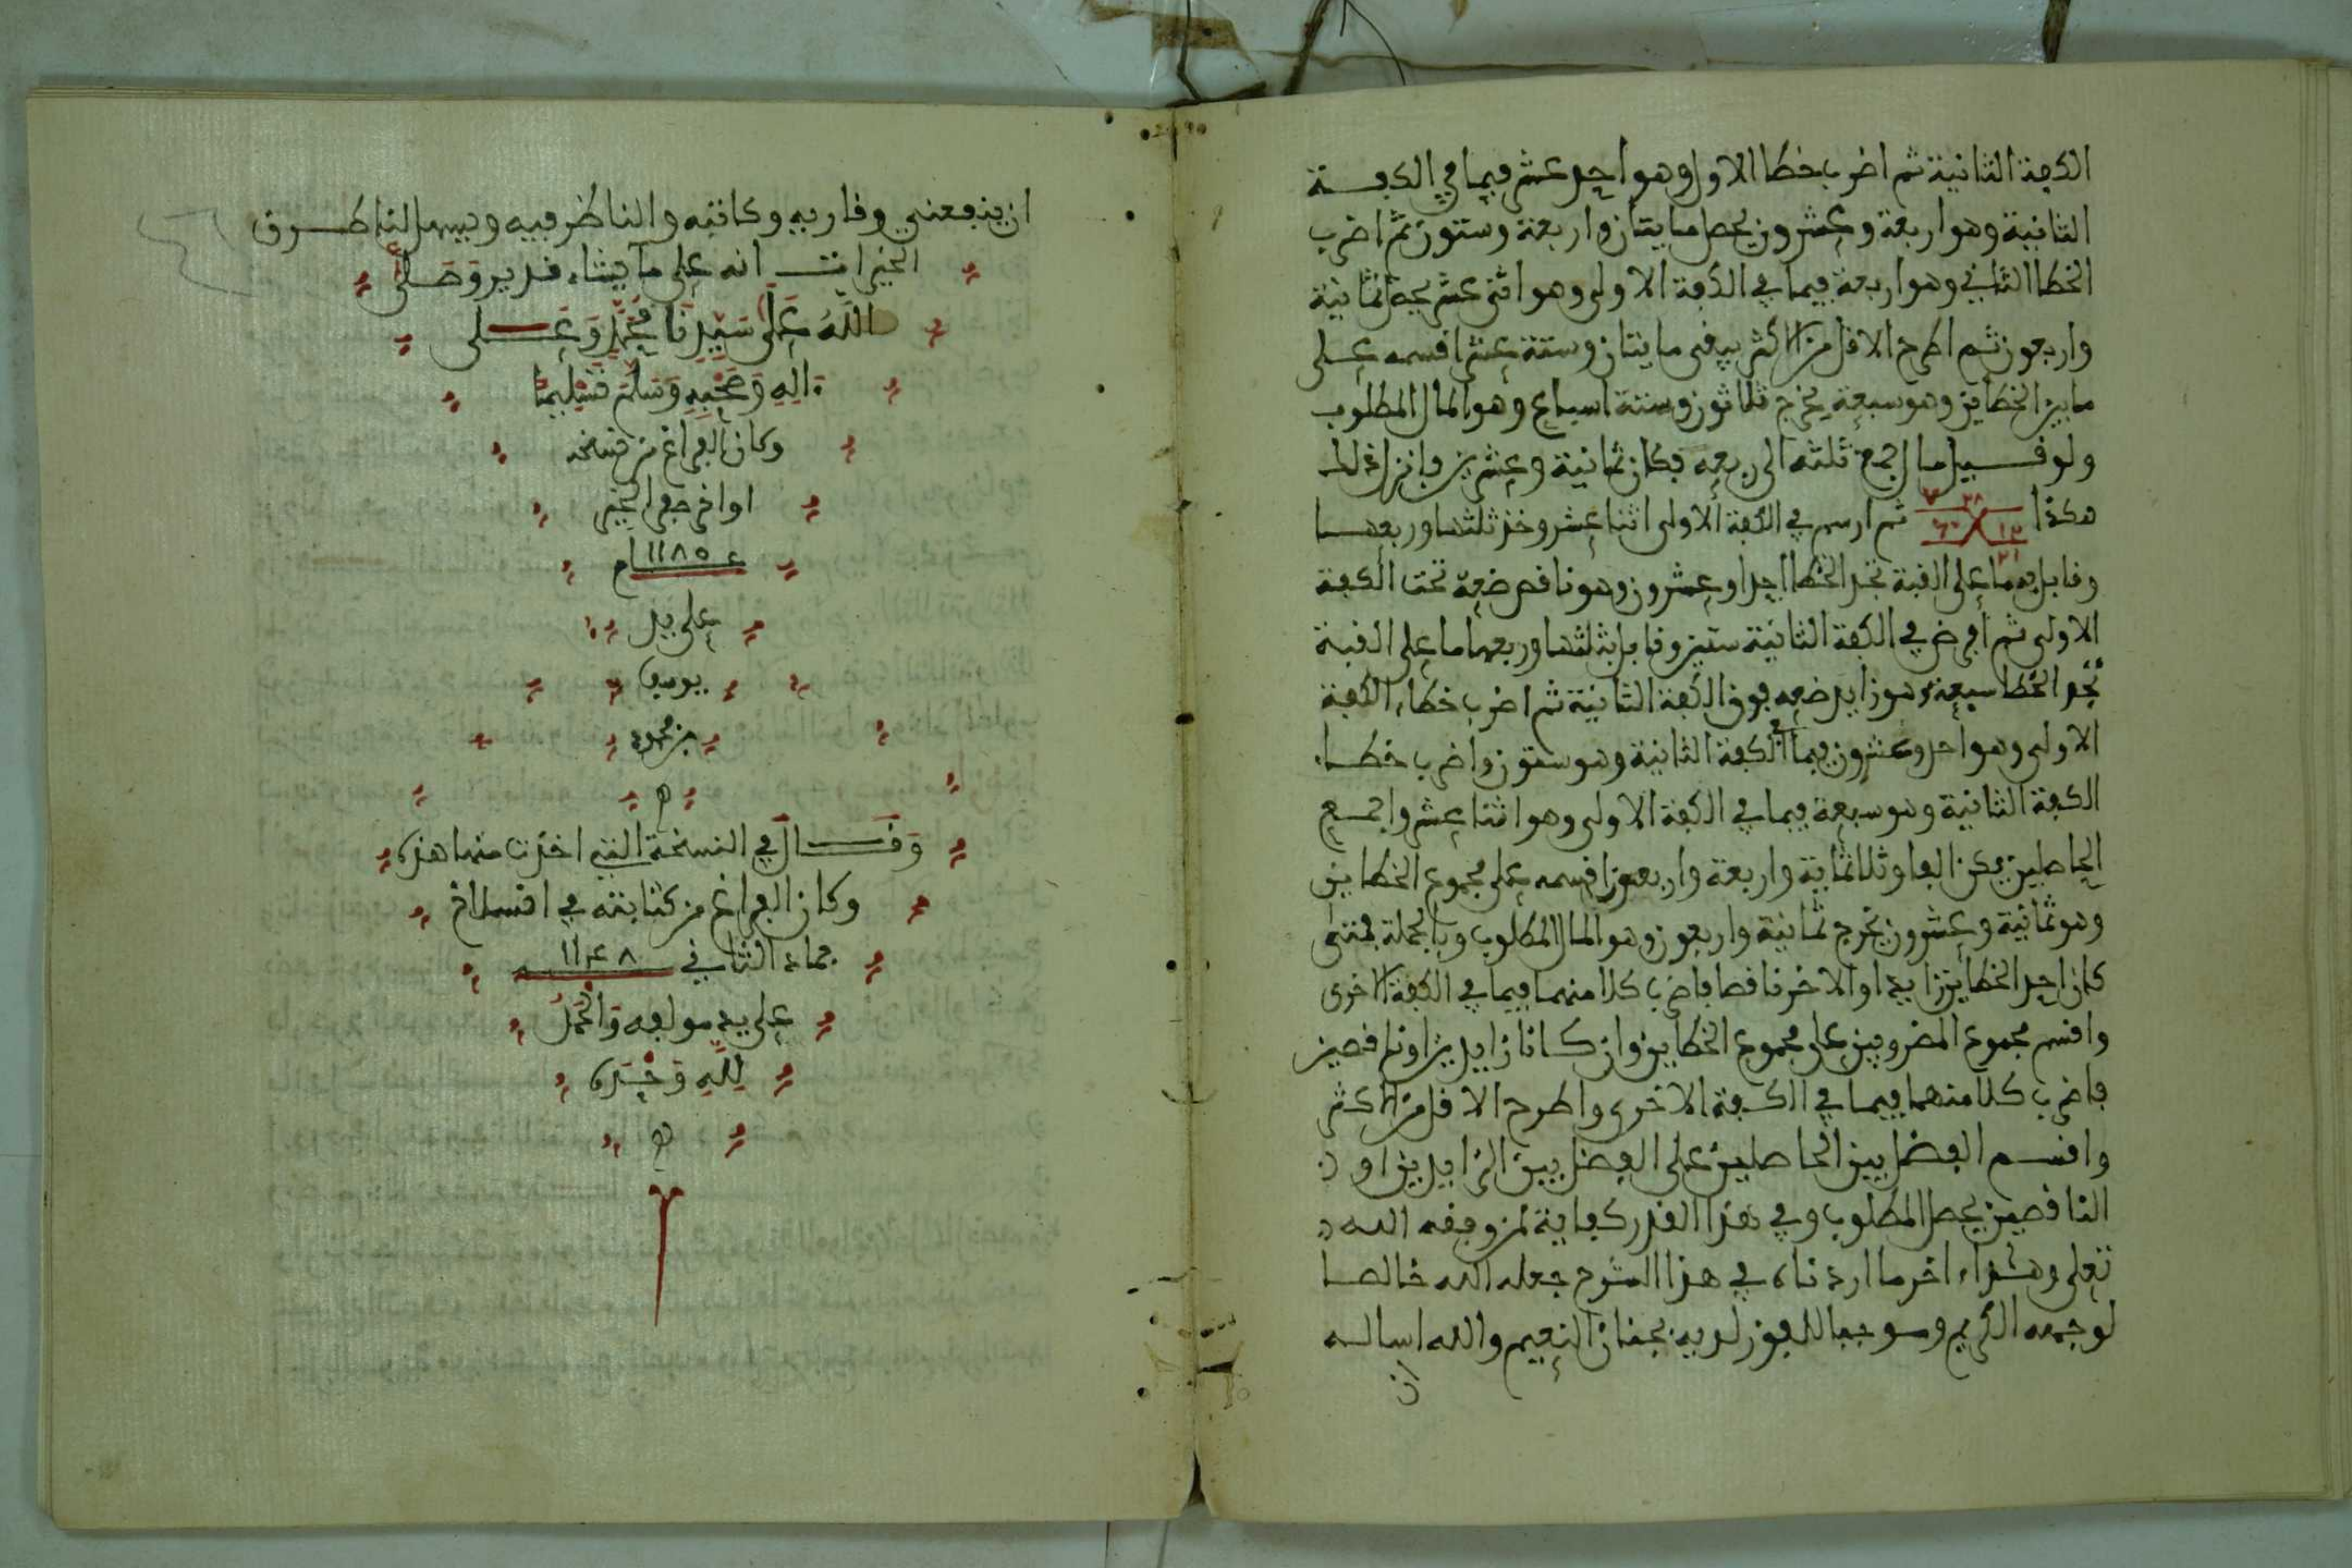 الكفة الثانية ثم اضرب خطا الاول وهو احد عشر فيما في الكفــة
الثانية وهو اربعة وعشرون يحصل مايتان واربعة وستون ثم اضرب
الخطا الثاني وهو اربعة فيما في الكفة الاولى وهو اثنى عشر يحصل ثمانية
واربعون ثم اطرح الاقل من الاكثر يبقى مايتان وستة عشر اقسمه على
ما بين الخطاين وهو سبعة يخرج ثلاثون وستة اسباع وهو المال المطلوب
ولو قــيل مال جمع ثلثه الى ربعه فكان ثمانية وعشرين فانزل ذلك
هكذا ٢٨ ٧ ١٢ ٦٠ ٢١ ثم ارسم في الكفة الاولى اثنا عشر وخذ ثلثها وربعهــا
وقابل به ما على القبة تجد الخطا احدا وعشرون وهو ناقص ضعه تحت الكفة
الاولى ثم افرض في الكفة الثانية ستين وقابل بثلثها وربعها ما على القبة
تجد الخطا سبعة وهو زايد ضعه فوق الكفة الثانية ثم اضرب خطاء الكفة
الاولى وهو احد وعشرون فيما في الكفة الثانية وهو ستون واضرب خطــاء
الكفة الثانية وهو سبعة فيما في الكفة الاولى وهو اثنا عشر واجمــع
الحاصلين يكن الفا وثلاثماية واربعة واربعون اقسمه على مجموع الخطاين
وهو ثمانية وعشرون يخرج ثمانية واربعون وهو المال المطلوب وبالجملة فمتى
كان احد الخطاين زايدا والاخر ناقصا فاضرب كلا منهما فيما في الكفة الاخرى
واقسم مجموع المضروبين على مجموع الخطاين وان كــانا زايدين او ناقصين
فاضرب كلا منهما فيما في الكــفة الاخرى واطرح الاقل من الاكثر
واقســم الفضل بين الحاصلين على الفضل بين الزايدين او
الناقصين يحصل المطلوب وفي هذا القدر كفاية لمن وفقه الله
تعلى وهذاء اخر ما اردناه في هذا الشرح جعله الله خالصــا
لوجهه الكريم وموجبا للفوز لديه بجنان النعيم والله اساله
ان
ان ينفعني وقاريه وكاتبه والناظر فيه ويسهل لنا طــرق
الخيرات انه على ما يشاء قدير وَصَــلَّى
اللَّهُ عَلَى سَيِّدِنَا مُحَمَّدٍ وَعَــلى
ءَالِهِ وَصَحْبِهِ وَسَلَّمَ تَسْلِيمًا
وكان الفراغ من نسخه
اواخر صفر الخير
١١٨٥ م
على يد
يوسف
بن محمود
ه
وَقَــالَ في النسخة التي اخذت منها هذه
وكان الفراغ من كتابته في انسلاخ
جماد الثاني ١١٤٨
على يد مولفه وَالْحَمْدُ
لِلَّهِ وَحْدَه
ه